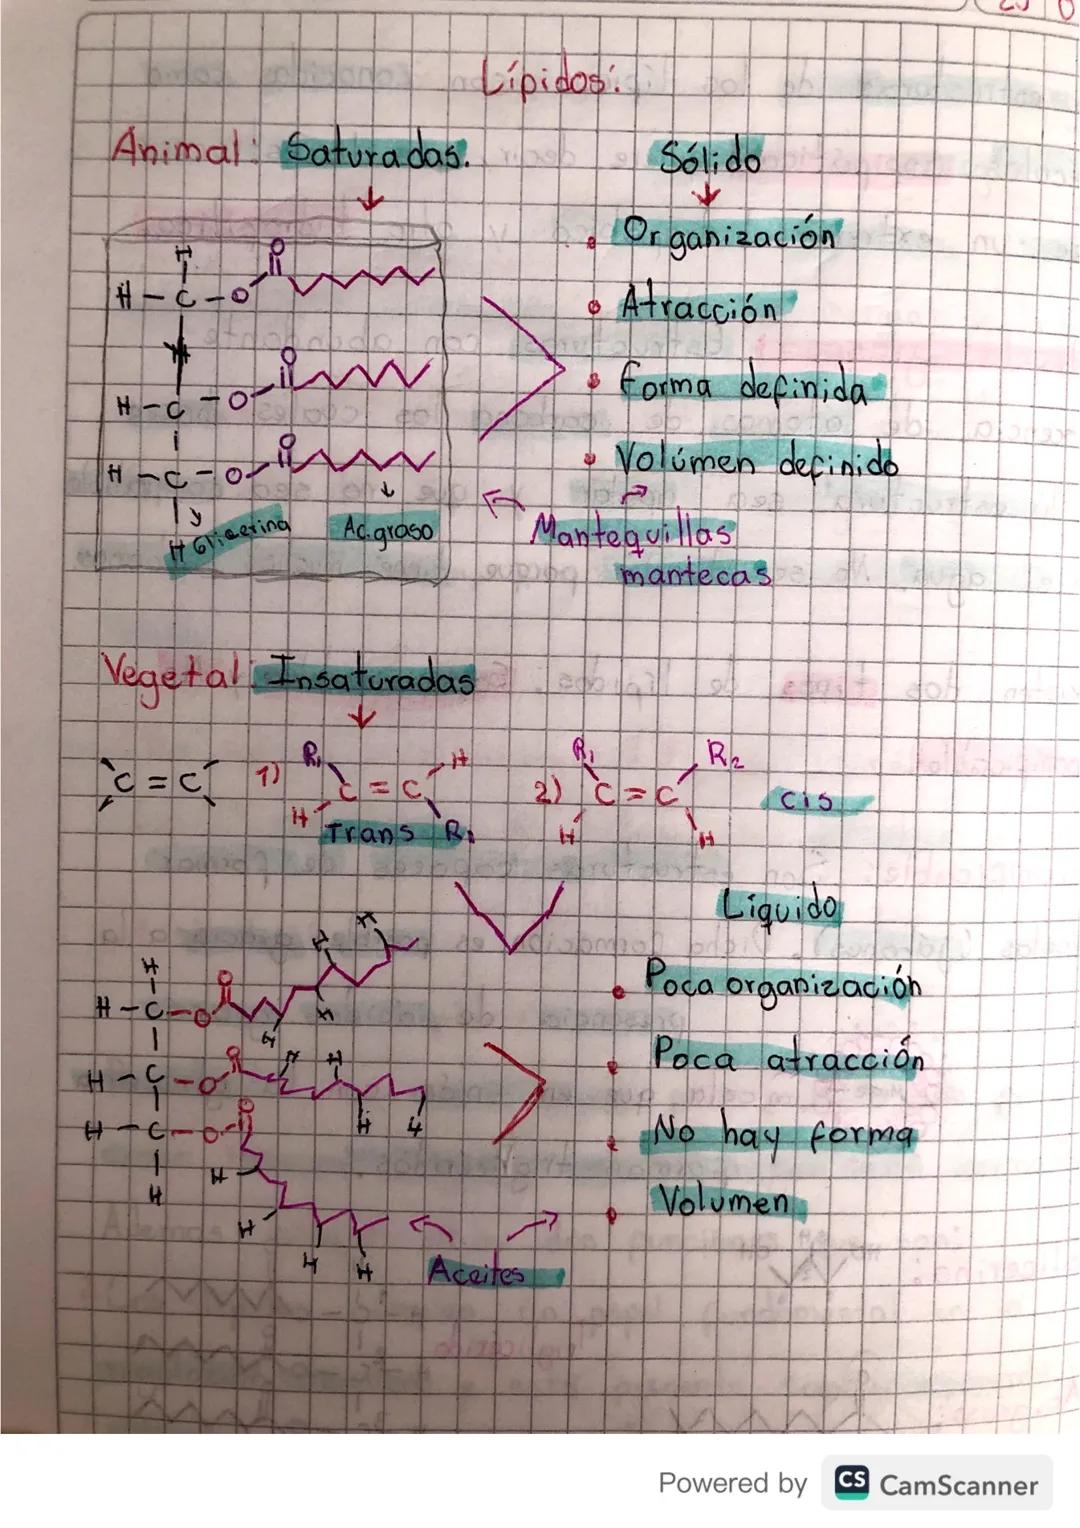 Lípidos:
Animal: Saturadas.
Sólido
H
H - C - O
O
H - C - O
O
H - C - O
O
H Glicerina
Ac. graso
• Organización
• Atracción
• Forma definida
• Volúmen definido
Mantequillas
mantecas
Vegetal: Insaturadas
C = C
1) R₁ C = C H
H
Trans R₂
2) R₁ C = C R₂
H H
cis
Líquido
• Poca organización
• Poca atracción
• No hay forma
• Volumen
H
H - C - O
O
H H
H H
H - C - O
O
H H
H H
H - C - O
O
H
H
H
H H
Aceites
Powered by CS CamScanner